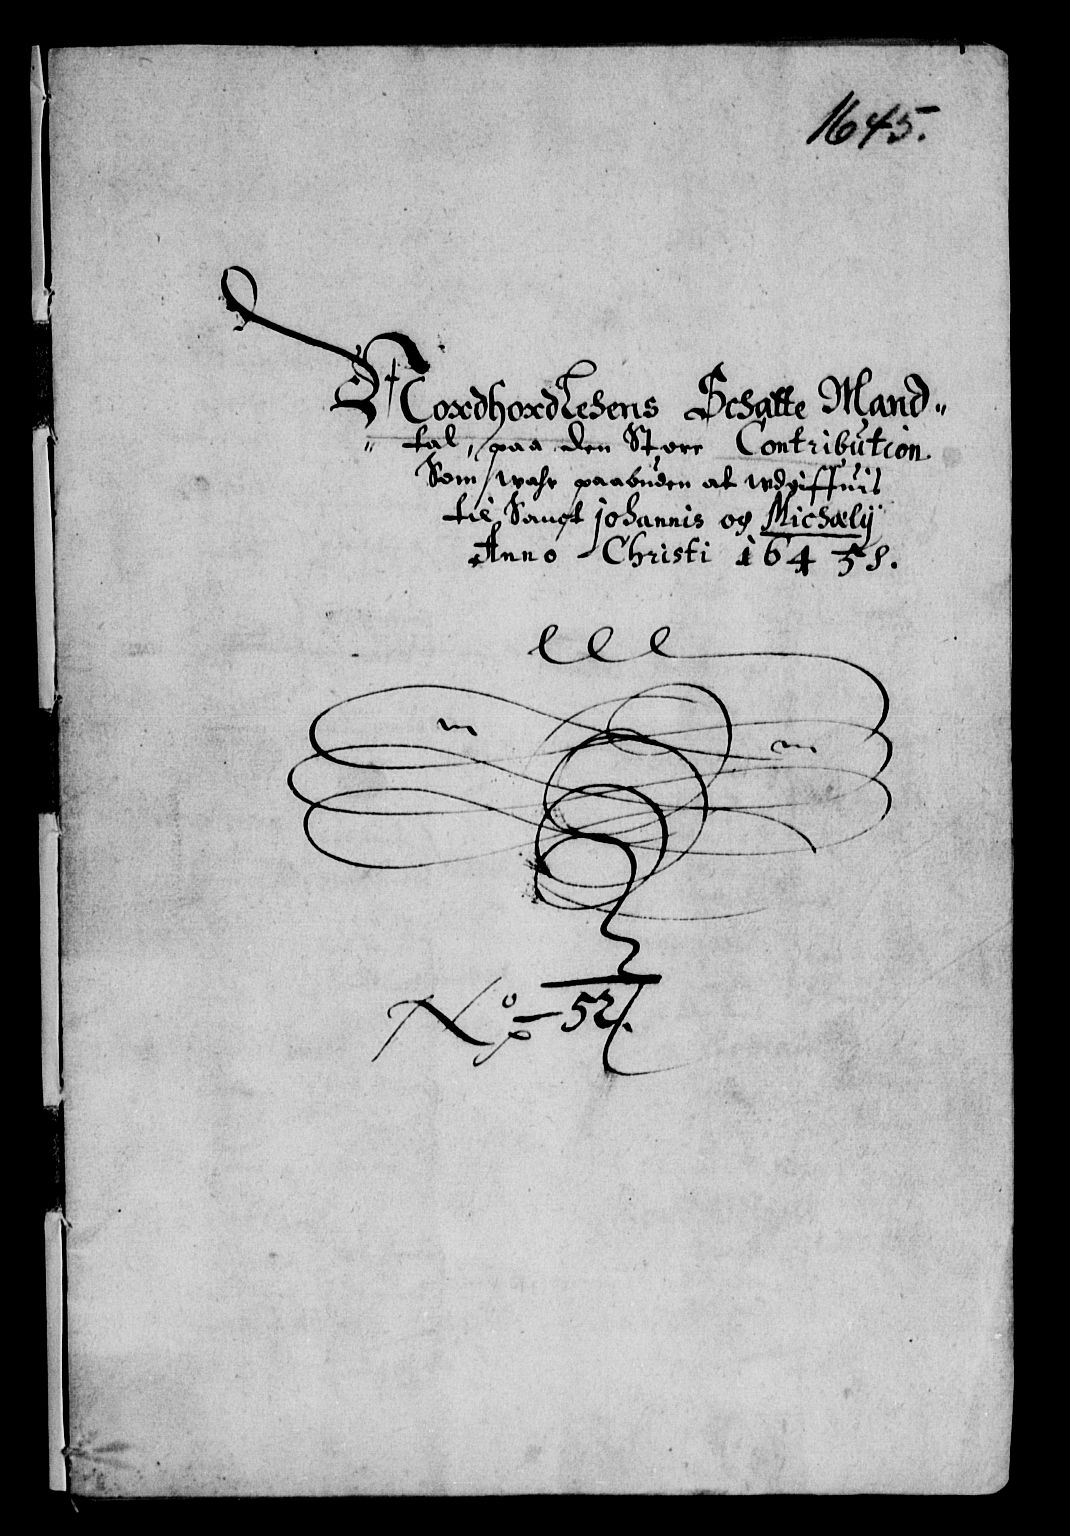 1645.
Nordhordlehens Schatte Mand"
" tal, paa den Store Contribution
Som wahr paabuden at wdgiffuis
til Sanct johannis og Michaelij
Anno Christi 1645.
N:o 52.